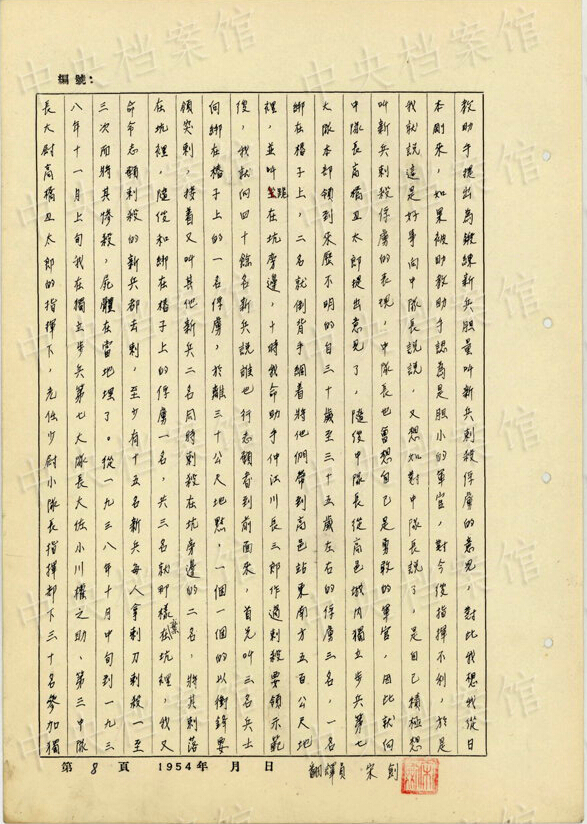 編號：
教助手提出為鍛鍊新兵胆量叫新兵刺殺俘虜的意見，對比我想我從日
本剛來，如果被助教助手認為是胆小的軍官，對今後指揮不利，於是
我就說這是好事向中隊長說說，又想如對中隊長說了，是自己積極想
叫新兵刺殺俘虜的表現，中隊長也會想自己是勇敢的軍官，因比就向
中隊長高橋丑太郎提出意見了，隨後中隊長從高邑城內獨立步兵第七
大隊本部領到來歷不明的自三十歲至三十五歲左右的俘虜三名，一名
綁在橋子上，二名就倒背手綑着將他們帶到高邑站東南方五百公尺地
裡，並叫跪在坑旁邊，十時我命助手仲江川長三郎作過刺殺要領示範
後，我就向四十餘名新兵說誰也行志願者到前面來，首先叫三名兵士
向綁在橋子上的一名俘虜，於離三十公尺地點，一個一個的以衝鋒要
領突刺，接着又叫其他新兵二名同時刺殺在坑旁邊的二名，將其刺落
在坑裡，隨後卸綁在橋子上的俘虜一名，共三名就那樣棄在坑裡，我又
命令志願刺殺的新兵都去刺，至少有十五名新兵每人拿刺刀刺殺一至
三次而將其慘殺，屍體在當地埋了。從一九三八年十月中旬到一九三
八年十一月上旬我在獨立步兵第七大隊長大佐小川權之助、第三中隊
長大尉高橋丑太郎的指揮下，充任少尉小隊長指揮部下三十名參加獨
第 8 頁 1954年 月 日
翻譯員 宋釗
中央档案馆